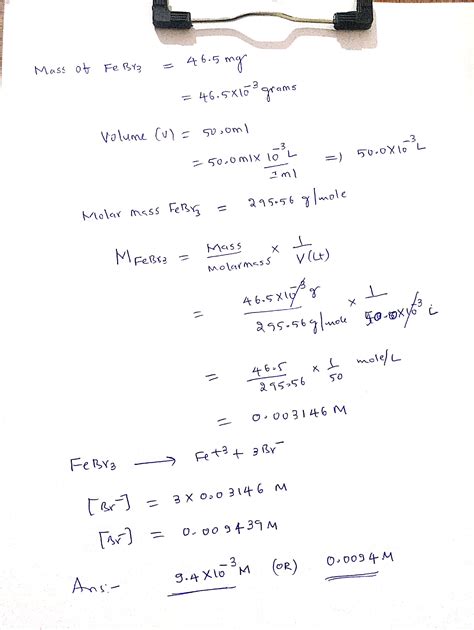 Mass of FeBr3 = 46.5 mg
= 46.5×10⁻³ grams
Volume (V) = 50.0ml
= 50.0ml× 10⁻³ L / 1ml =) 50.0×10⁻³ L
Molar mass FeBr3 = 295.56 g/mole
MFeBr3 = Mass / molarmass × 1 / V(Lt)
= 46.5×10⁻³ g / 295.56g/mole × 1 / 50.0×10⁻³ L
= 46.5 / 295.56 × 1 / 50 mole/L
= 0.003146 M
FeBr3 ⟶ Fe+3 + 3Br⁻
[Br⁻] = 3×0.03146 M
[Br⁻] = 0.009439M
Ans:- 9.4×10⁻³ M (OR) 0.0094M